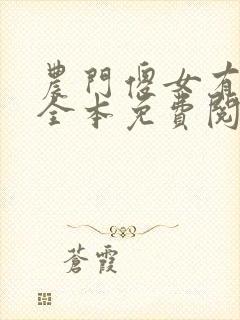 農門傻女有
全本免費閱
蒼霞